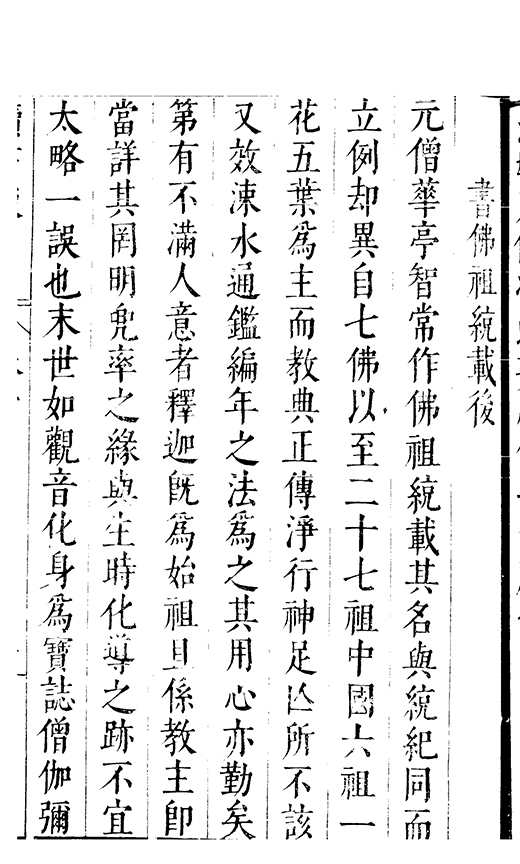 書佛祖統載後
元僧華亭智常作佛祖統載其名與統紀同而
立例却異自七佛以至二十七祖中國六祖一
花五葉爲主而教典正傳淨行神足亾所不該
又效涑水通鑑編年之法爲之其用心亦勤矣
第有不滿人意者釋迦旣爲始祖且係教主卽
當詳其罔明兜率之緣與生時化導之跡不宜
太略一誤也末世如觀音化身爲寶誌僧伽彌